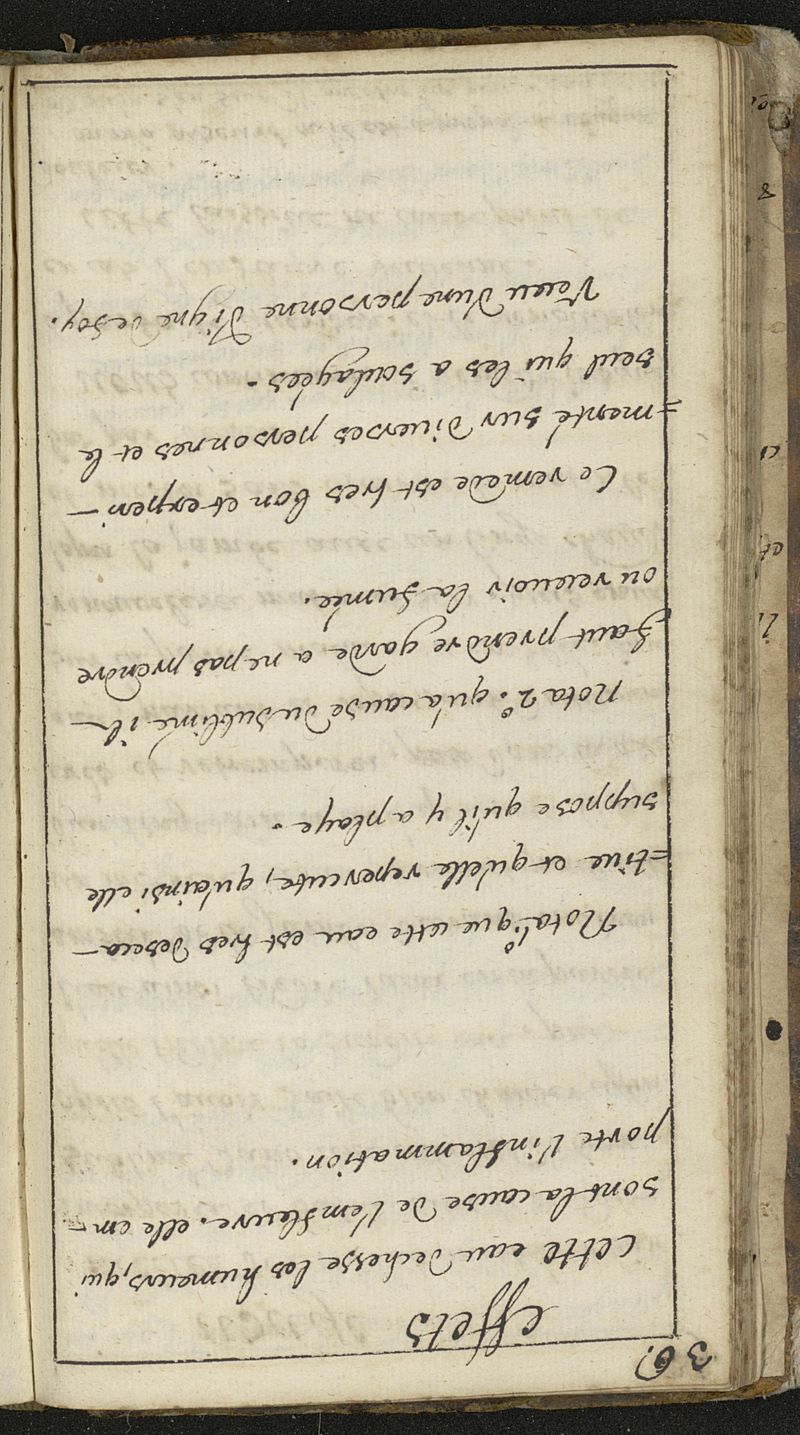 36.
effets
Cette eau dechesse les humeurs, qui
sont la cause de l'emfleure. elle em-
porte l'inflammation.
Nota 1° que cette eau est tres desica-
=tive et qu'elle repercute, qu'ainsi elle
suppose qu'il y a playe.
Nota 2° qu'a cause du sublimé il
faut prendre garde a ne pas prendre
ou recevoir la fumée.
Ce remede est tres bon et experi-
=menté sur diverses personnes et le
seul qui les a soulagées.
Veu d'une personne digne de foy.